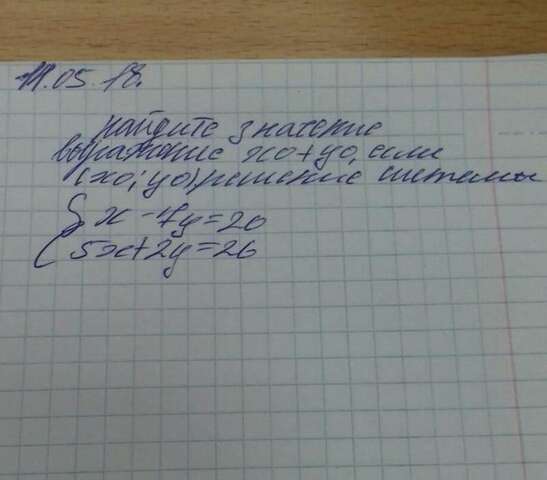 11.05.18.
найдите значение
выражение x0+y0, если
(x0; y0) решение системы
{ x -4y=20
5x+2y=26